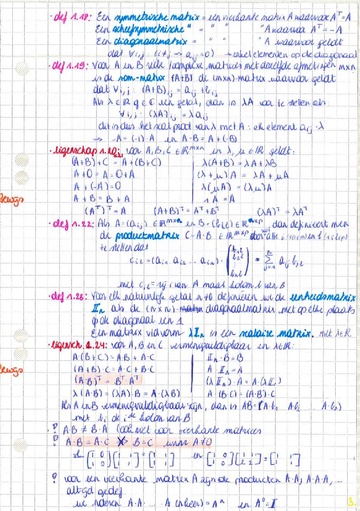 · def 1.18: Een symmetrische matrix = een vierkante matrix A waarvoor Aᵀ=A
Een scheefsymmetrische " = " " A waarvoor Aᵀ=-A
Een diagonaalmatrix = " " A waarvoor geldt
dat ∀i,j (i≠j → aij=0) → enkel elementen op de diagonaal
· def 1.19: Voor A en B reële matrices met dezelfde afmetingen m×n
is de som-matrix (A+B) de (m×n)-matrix waarvoor geldt
dat ∀i,j: (A+B)ij = aij + bij
Als λ ∈ ℝ een getal, dan is λA voor te stellen als
∀i,j: (λA)ij = λaij
dit is dus het scalair product van λ met A: elk element aij·λ
→ -A = (-1)·A en A-B = A+(-B)
· eigenschap 1.20: voor A,B,C ∈ ℝ^m×n en λ,μ ∈ ℝ geldt:
(A+B)+C = A+(B+C) | λ(A+B) = λA+λB
A+0 = A = 0+A | (λ+μ)A = λA+μA
A+(-A) = 0 | λ(μA) = (λμ)A
A+B = B+A | 1A = A
Bewijs
(Aᵀ)ᵀ = A (A+B)ᵀ = Aᵀ+Bᵀ (λA)ᵀ = λAᵀ
· def 1.22: Als A = (aij) ∈ ℝ^m×n en B = (bij) ∈ ℝ^n×p, dan definieert men
de productmatrix C = A·B ∈ ℝ^m×p door
te stellen dat
met cij = i-rij van A maal kolom j van B
· def 1.23: Voor elk natuurlijk getal n≠0 definiëren we de eenheidsmatrix
𝕀n als de (n×n) diagonaalmatrix met op elke plaats
op de diagonaal een 1
Een matrix van vorm λ𝕀n is een scalaire matrix, met λ∈ℝ
· eigensch. 1.24: voor A, B en C vermenigvuldigbaar en λ∈ℝ:
A(B+C) = AB+A·C | 𝕀n·B = B
(A+B)·C = A·C+B·C | A·𝕀n = A
Bewijs
(A·B)ᵀ = Bᵀ Aᵀ | (λ𝕀n)A = A(λ𝕀n)
λ(A·B) = (λA)B = A·(λB) | A(B·C) = (A·B)·C
Als A en B vermenigvuldigbaar zijn, dan is AB = (A·b1 A·b2 A·bn)
met bi de iᵉ kolom van B
! AB ≠ B·A ook niet voor vierkante matrices
! A·B = A·C ⇏ B=C wnr A≠0
? voor een vierkante matrix A zijn de producten A·A, A·A·A, ...
altijd gedef
we noteren A·A·... A (n keer) = Aⁿ en A⁰=𝕀
3